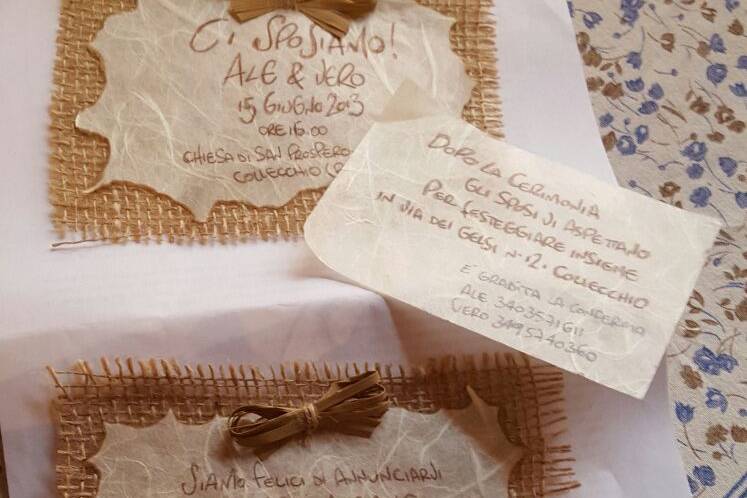 CI SPOSIAMO!
ALE & VERO
15 GIUGNO 2013
ORE 16.00
CHIESA DI SAN PROSPERO
COLLECCHIO
DOPO LA CERIMONIA
GLI SPOSI VI ASPETTANO
PER FESTEGGIARE INSIEME
IN VIA DEI GELSI N° 12 • COLLECCHIO
E' GRADITA LA CONFERMA
ALE
VERO
SIAMO FELICI DI ANNUNCIARVI